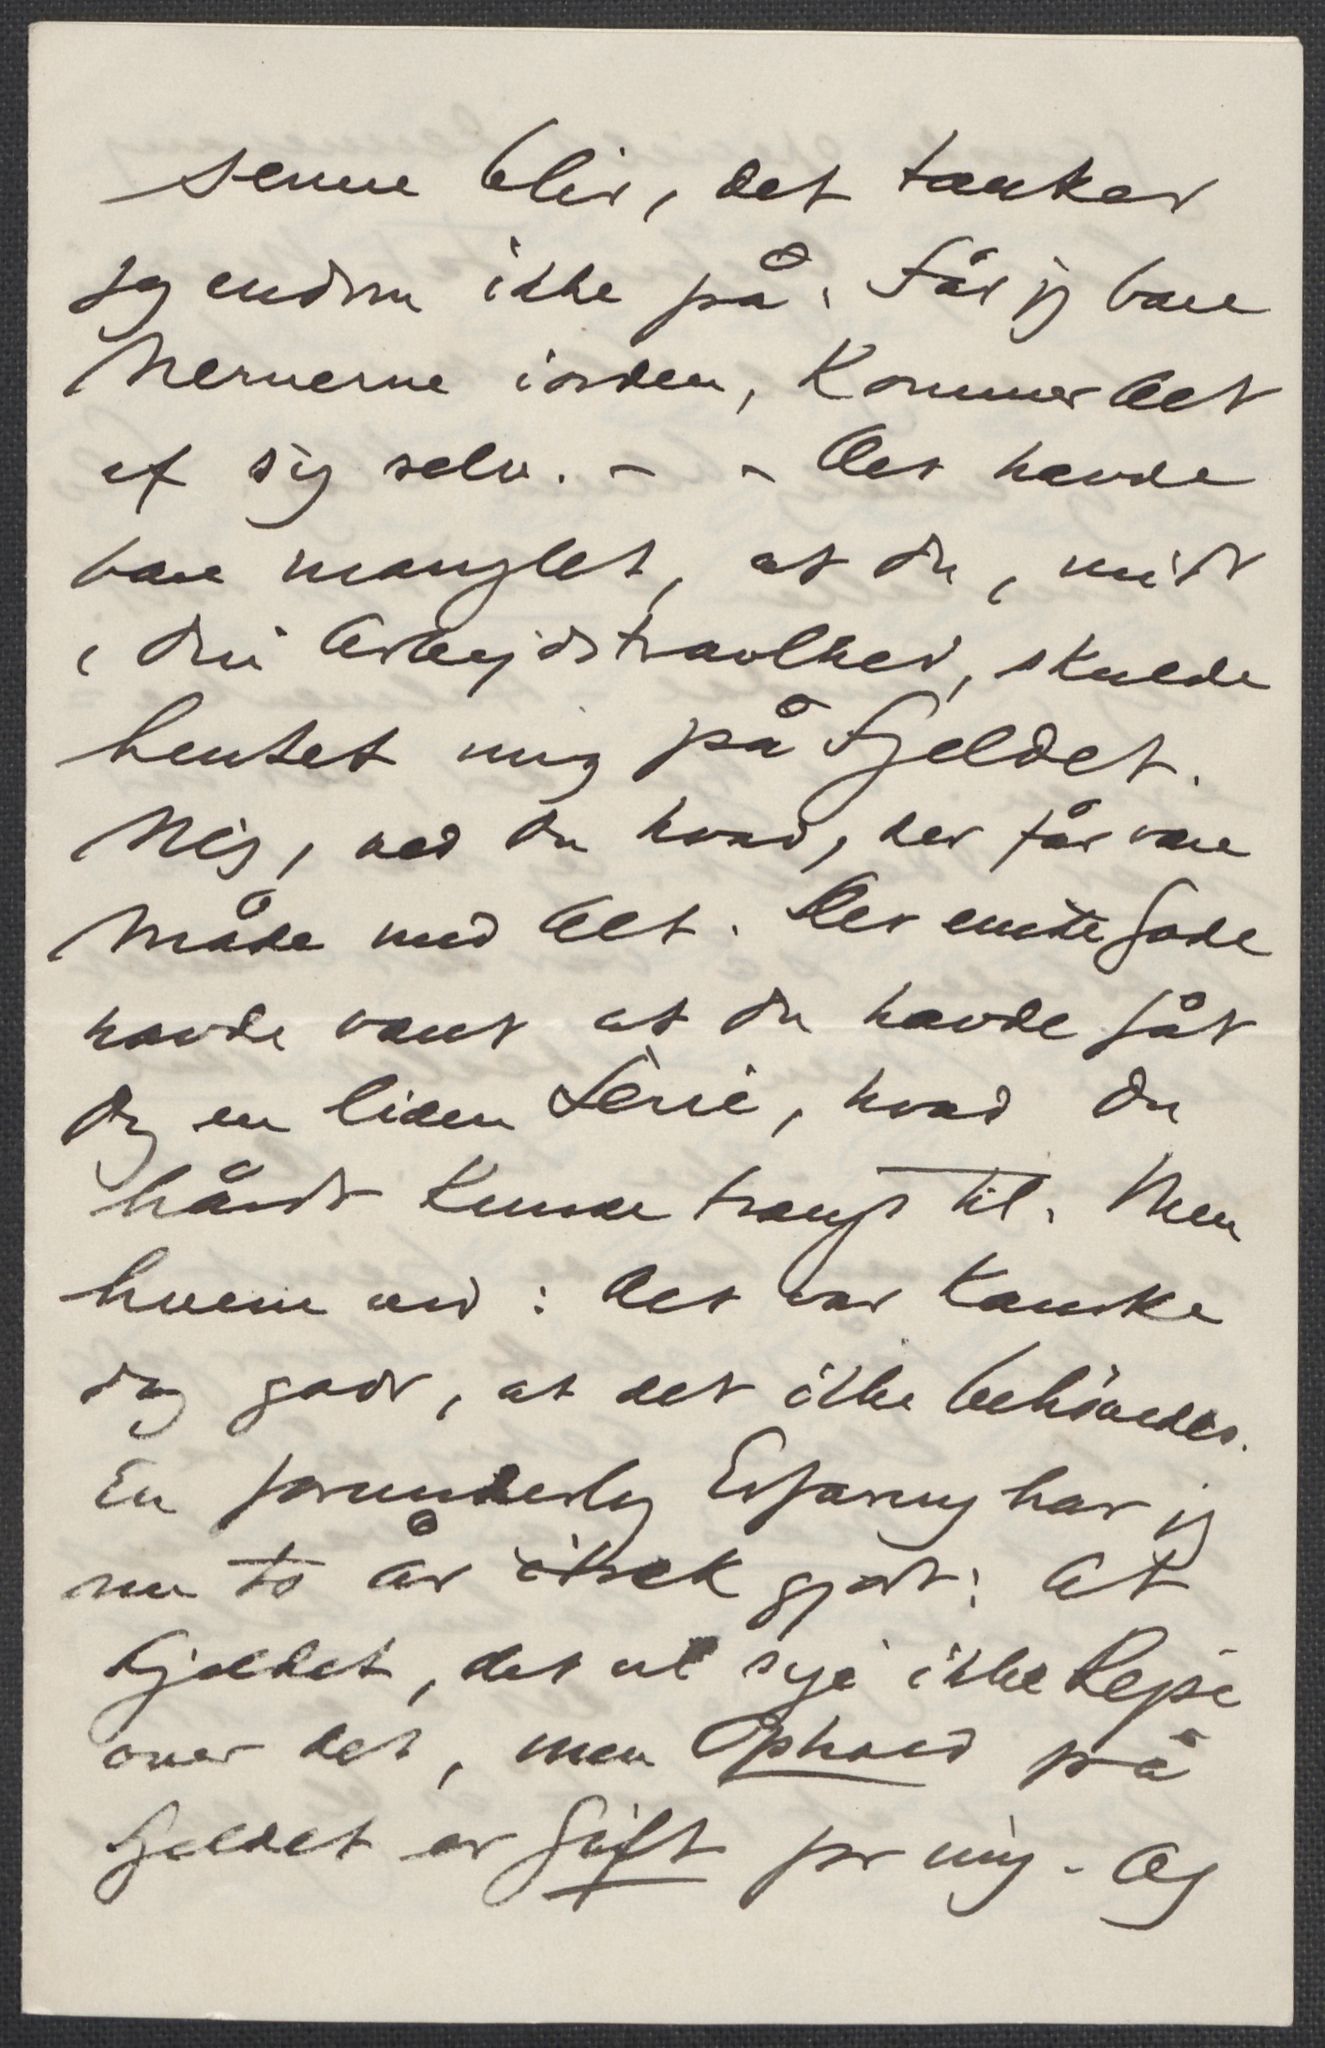 senere blir, det tænker
jeg endnu ikke på. Får jeg bare
Nerverne iorden, kommer det
af sig selv. – – Det havde
bare manglet, at du, midt
i din Arbejdstravlhed, skulde
hentet mig på Fjeldet.
Nej, ved du hvad, der får være
Måde med Alt. Det eneste Gode
havde været at du havde fåt
dig en liden Ferie, hvad du
hårdt kunde trængt til. Men
hvem ved: Det var kanske
dog godt, at det ikke behövedes.
En forunderlig Erfaring har jeg
nu to år itræk gjort: At
Fjeldet, det vil sige ikke Rejse
over det, men Ophold på
Fjeldet er Gift for mig. Og